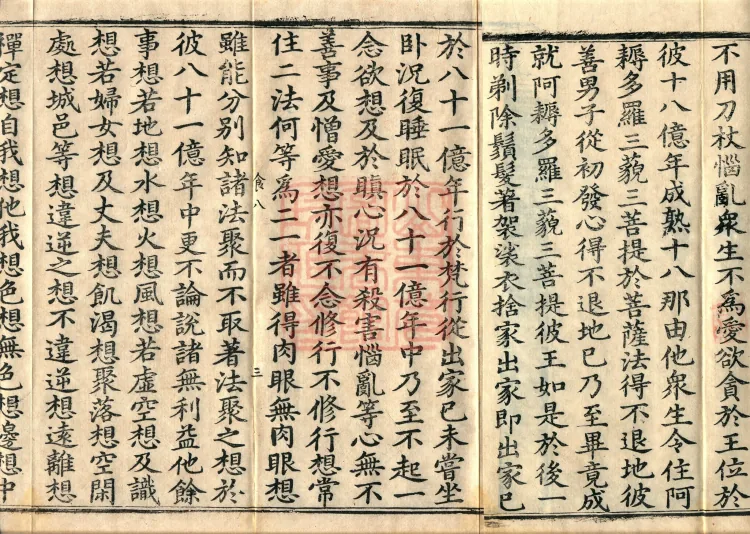 不用刀杖惱亂衆生不爲愛欲貪於王位於
彼十八億年成熟十八那由他衆生令住阿
耨多羅三藐三菩提於菩薩法得不退地彼
善男子從初發心得不退地已乃至畢竟成
就阿耨多羅三藐三菩提彼王如是於後一
時剃除鬚髮著袈裟衣捨家出家即出家已
於八十一億年行於梵行從出家已未嘗坐
卧況復睡眠於八十一億年中乃至不起一
念欲想及於瞋心況有殺害惱亂等心無不
善事及憎愛想亦復不念修行不修行想常
住二法何等爲二一者雖得肉眼無肉眼想
食八 三
雖能分別知諸法聚而不取著法聚之想於
彼八十一億年中更不論說諸無利益他餘
事想若地想水想火想風想若虛空想及識
想若婦女想及丈夫想飢渴想聚落想空閑
處想城邑等想違逆之想不違逆想遠離想
禪定想自我想他我想色想無色想邊想中